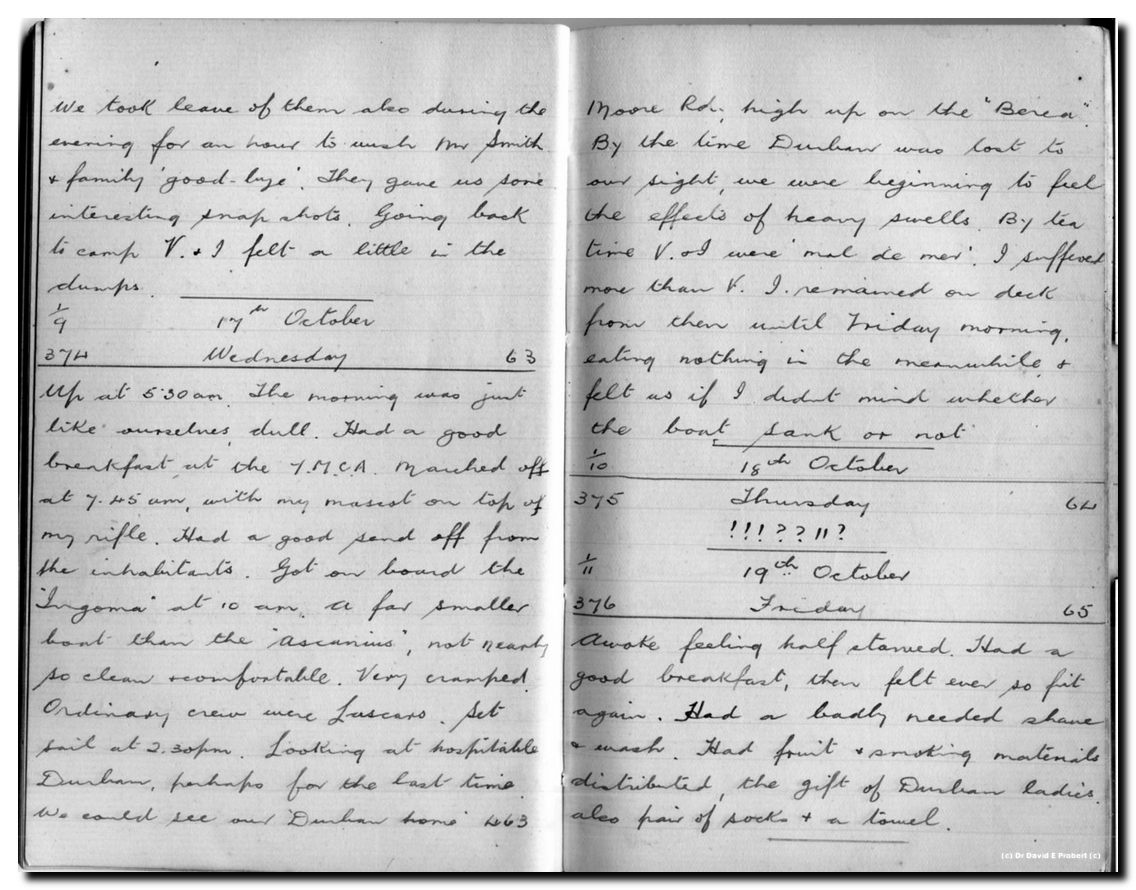 We took leave of them also during the
evening for an hour to wish Mr Smith
& family 'good-bye'. They gave us some
interesting snap shots. Going back
to camp V. & I felt a little in the
dumps.
1/9 17th October
374 Wednesday 63
Up at 5.30 am. The morning was just
like ourselves, dull. Had a good
breakfast at the Y.M.C.A. Marched off
at 7.45 am, with my mascot on top of
my rifle. Had a good send off from
the inhabitants. Got on board the
"Ingoma" at 10 am. A far smaller
boat than the "Ascanius", not nearly
so clean & comfortable. Very cramped.
Ordinary crew were Lascars. Set
sail at 2.30pm. Looking at hospitable
Durban, perhaps for the last time.
We could see our 'Durban home' 463
Moore Rd., high up on the "Berea".
By the time Durban was lost to
our sight, we were beginning to feel
the effects of heavy swells. By tea
time V. & I were 'mal de mer'. I suffered
more than V. I remained on deck
from then until Friday morning,
eating nothing in the meanwhile, &
felt as if I didnt mind whether
the boat sank or not
1/10 18th October
375 Thursday 64
!!! ?? !! ?
1/11 19th October
376 Friday 65
Awoke feeling half starved. Had a
good breakfast, then felt ever so fit
again. Had a badly needed shave
& wash. Had fruit & smoking materials
distributed, the gift of Durban ladies.
also pair of socks & a towel.
(c) Dr David E Probert (c)